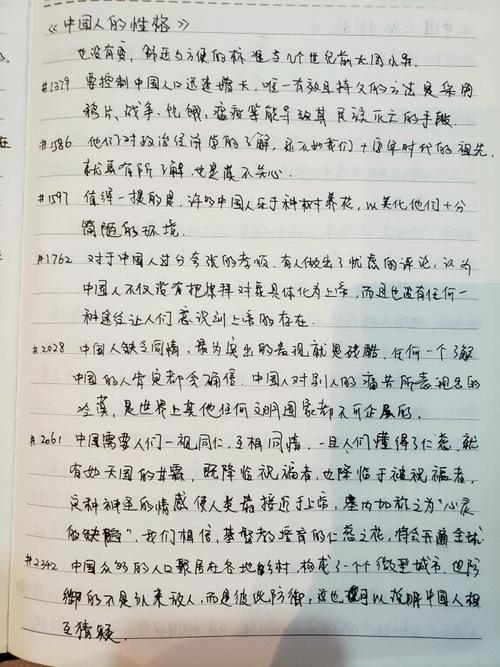 《中国人的性格》
也没有变，舒适与方便的标准与几个世纪前大同小异.
#1379 要控制中国人口迅速增大，唯一有效且持久的方法是采用
鸦片、战争、饥饿、瘟疫等能导致其民族灭亡的手段.
#1586 他们对政治经济学的了解，还不如我们十字军时代的祖先，
就算有所了解，也是漠不关心.
#1597 值得一提的是，许多中国人乐于种树养花，以美化他们十分
简陋的环境.
#1762 对于中国人过分夸张的孝顺，有人做出了忧虑的评论，认为
中国人不仅没有把崇拜对象具体化为上帝，而且也没有任何一
种途径让人们意识到上帝的存在.
#2028 中国人缺乏同情，最为突出的表现就是残酷，任何一个了解
中国的人肯定都会确信，中国人对别人的痛苦所表现出的
冷漠，是世界上其他任何文明国家都不可企及的.
#2061 中国需要人们一视同仁，互相同情，一旦人们懂得了仁慈，就
有如天国的甘霖，既降临祝福者，也降临于被祝福者，
这种神圣的情感使人类最接近于上帝，塞内加称之为“心灵
的缺陷”，我们相信，基督教培育的仁慈之花，将会开遍全球.
#2342 中国众多的人口聚居在各地的村，构成了一个个微型城市，也防
御的不是外来敌人，而是彼此防御，这也可以说明中国人相
互猜疑.